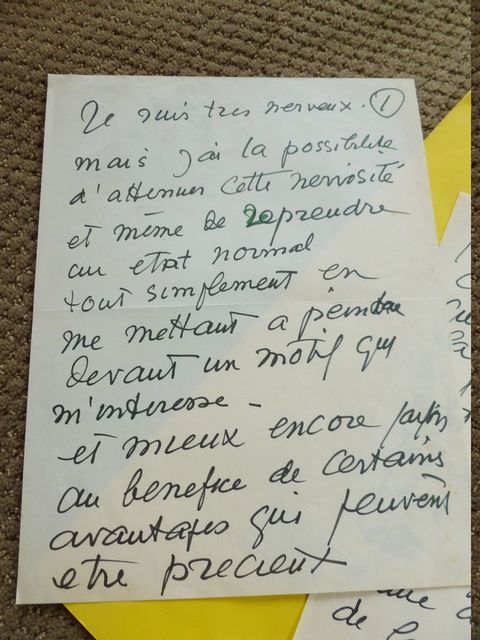 Je suis tres nerveux. 1
mais j'ai la possibilité
d'attenuer cette nervosité
et même de reprendre
un etat normal
tout simplement en
me mettant a peindre
devant un motif qui
m'interesse -
et mieux encore parfois
au benefice de certains
avantages qui peuvent
etre precieux
de